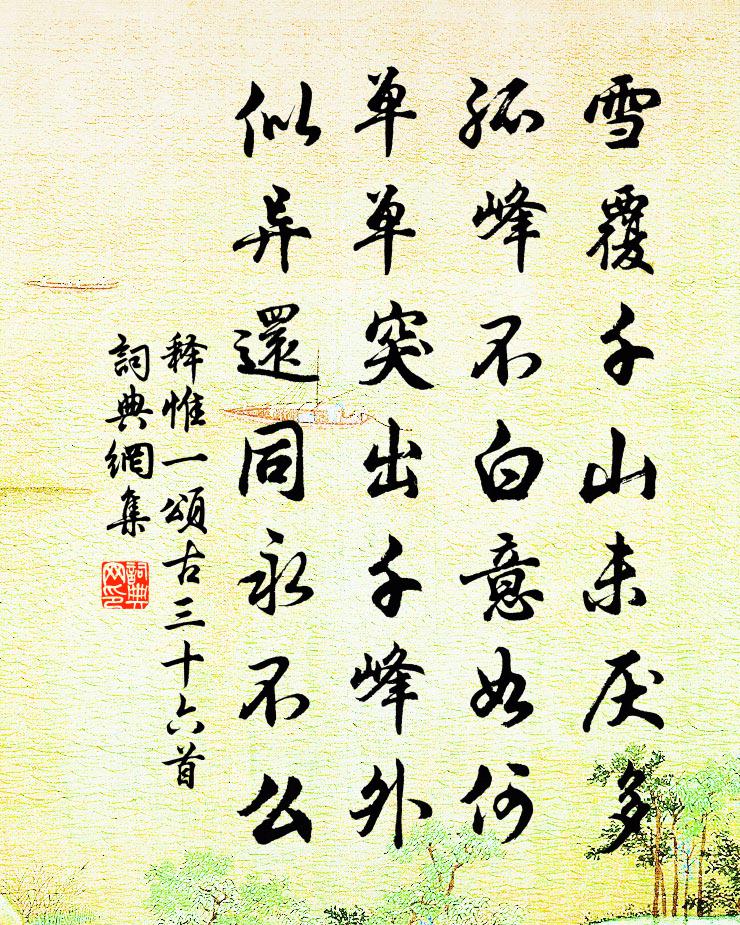 雪覆千山未厌多
孤峰不白意如何
单单突出千峰外
似异還同永不么
释惟一颂古三十六首
詞典網集
詞典
网印